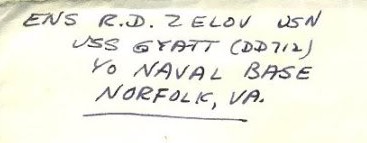 ENS R.D. ZELOV USN
USS GYATT (DD712)
℅ NAVAL BASE
NORFOLK, VA.